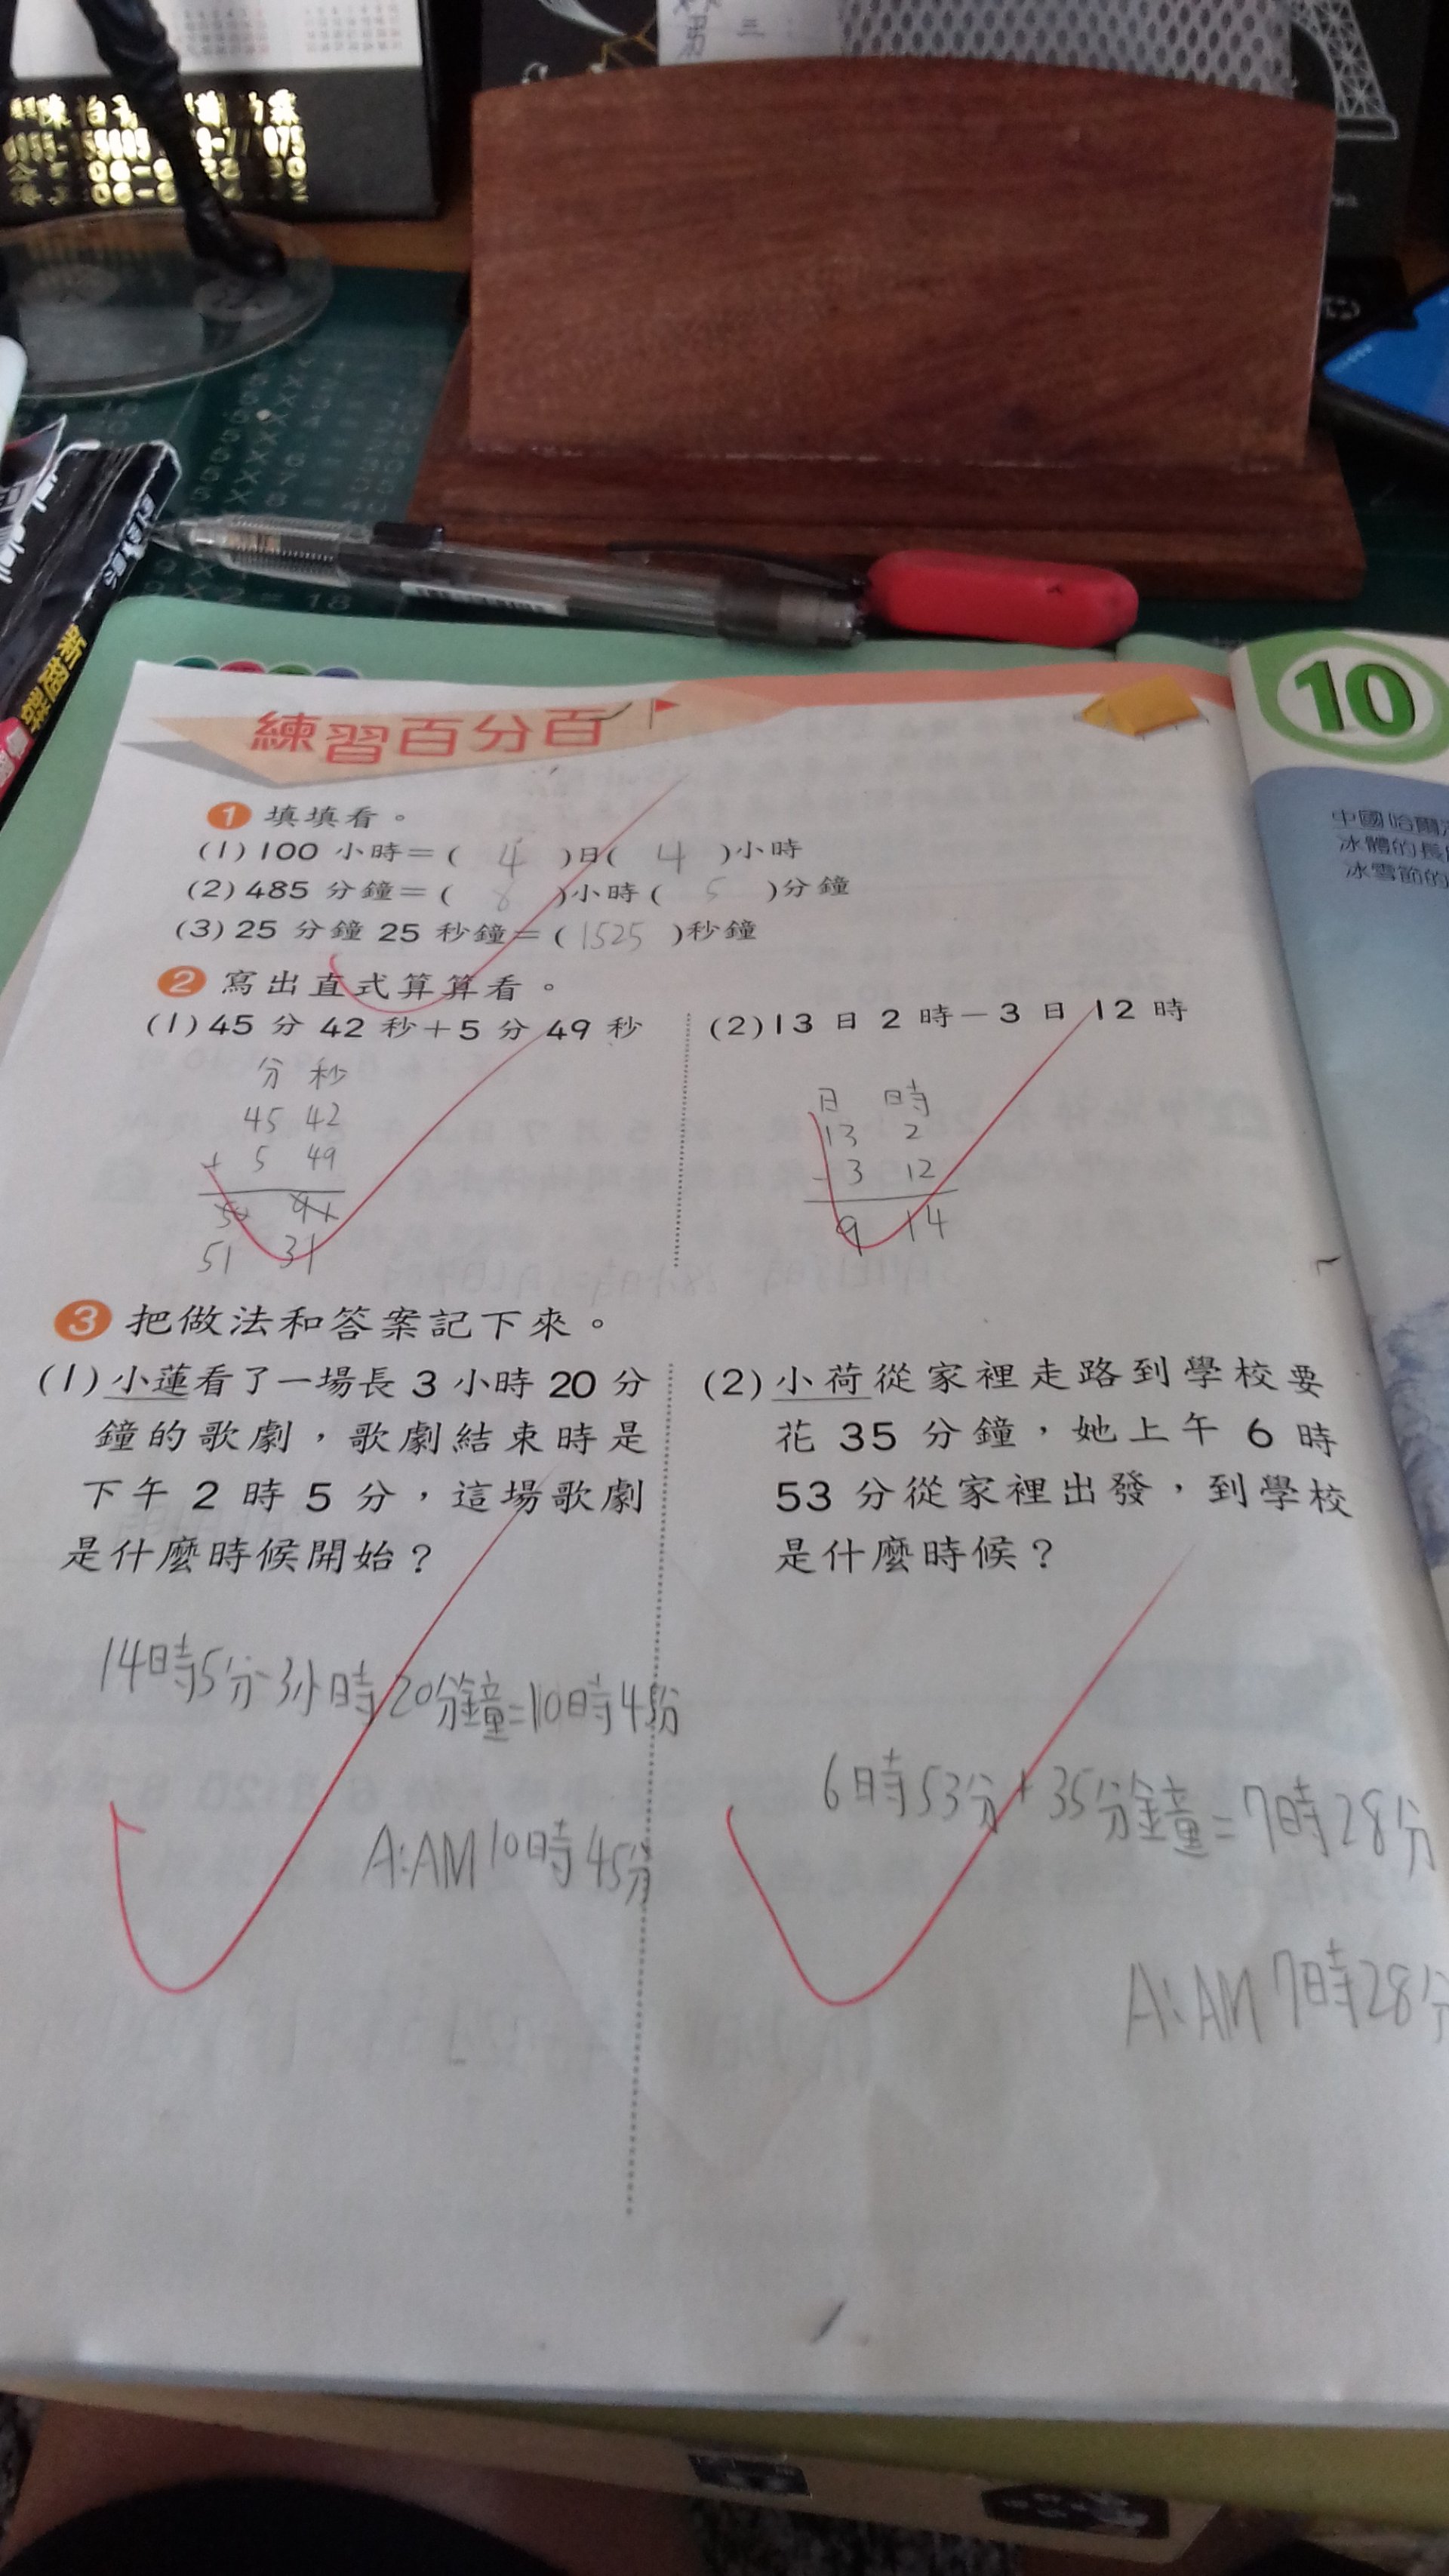 三
練習百分百
10
1 填填看。
(1) 100 小時=( 4 )日( 4 )小時
(2) 485 分鐘=( 8 )小時( 5 )分鐘
(3) 25 分鐘 25 秒鐘=( 1525 )秒鐘
2 寫出直式算算看。
(1) 45 分 42 秒+5 分 49 秒
分 秒
45 42
+ 5 49
51 31
(2) 13 日 2 時-3 日 12 時
日 時
13 2
- 3 12
9 14
3 把做法和答案記下來。
(1) 小蓮看了一場長 3 小時 20 分
鐘的歌劇,歌劇結束時是
下午 2 時 5 分,這場歌劇
是什麼時候開始?
14時5分-3小時20分鐘=10時45分
A:AM10時45分
(2) 小荷從家裡走路到學校要
花 35 分鐘,她上午 6 時
53 分從家裡出發,到學校
是什麼時候?
6時53分+35分鐘=7時28分
A:AM 7時28分
中國哈爾
冰體的長
冰雪節的